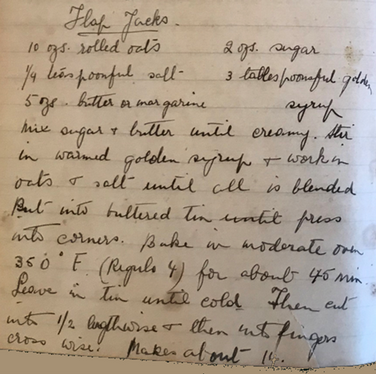 Flap Jacks.
10 ozs. rolled oats 2 ozs. sugar
1/4 teaspoonful salt 3 tablespoonsful golden
5 ozs. butter or margarine syrup
Mix sugar & butter until creamy. Stir
in warmed golden syrup & work in
oats & salt until all is blended
Put into buttered tin until press
into corners. Bake in moderate oven
350° F. (Regulo 4) for about 45 min
Leave in tin until cold. Then cut
into 1/2 lengthwise & then into fingers
cross wise. Makes about 16.